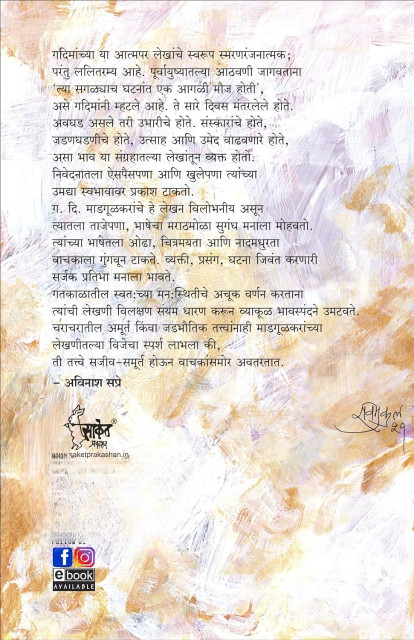 गदिमांच्या या आत्मपर लेखांचे स्वरूप स्मरणरंजनात्मक;
परंतु ललितरम्य आहे. पूर्वायुष्यातल्या आठवणी जागवताना
'त्या सगळ्याच घटनांत एक आगळी मौज होती',
असे गदिमांनी म्हटले आहे. ते सारे दिवस मंतरलेले होते.
अवघड असले तरी उभारीचे होते. संस्कारांचे होते,
जडणघडणीचे होते, उत्साह आणि उमेद वाढवणारे होते,
असा भाव या संग्रहातल्या लेखांतून व्यक्त होतो.
निवेदनातला ऐसपैसपणा आणि खुलेपणा त्यांच्या
उमद्या स्वभावावर प्रकाश टाकतो.
ग. दि. माडगूळकरांचे हे लेखन विलोभनीय असून
त्यातला ताजेपणा, भाषेचा मराठमोळा सुगंध मनाला मोहवतो.
त्यांच्या भाषेतला ओढा, चित्रमयता आणि नादमधुरता
वाचकाला गुंगवून टाकते. व्यक्ती, प्रसंग, घटना जिवंत करणारी
सर्जक प्रतिभा मनाला भावते.
गतकाळातील स्वतःच्या मनःस्थितीचे अचूक वर्णन करताना
त्यांची लेखणी विलक्षण संयम धारण करून व्याकूळ भावस्पंदने उमटवते.
चराचरातील अमूर्त किंवा जडभौतिक तत्त्वांनाही माडगूळकरांच्या
लेखणीतल्या विजेचा स्पर्श लाभला की,
ती तत्त्वे सजीव-समूर्त होऊन वाचकांसमोर अवतरतात.
– अविनाश सप्रे
साकेत®
प्रकाशन
www.saketprakashan.in
FOLLOW US
ebook
AVAILABLE